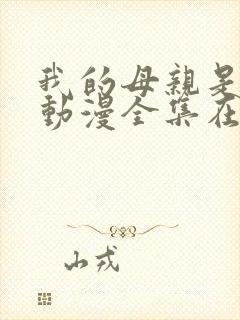 我的母親是
動漫全集在
山戎